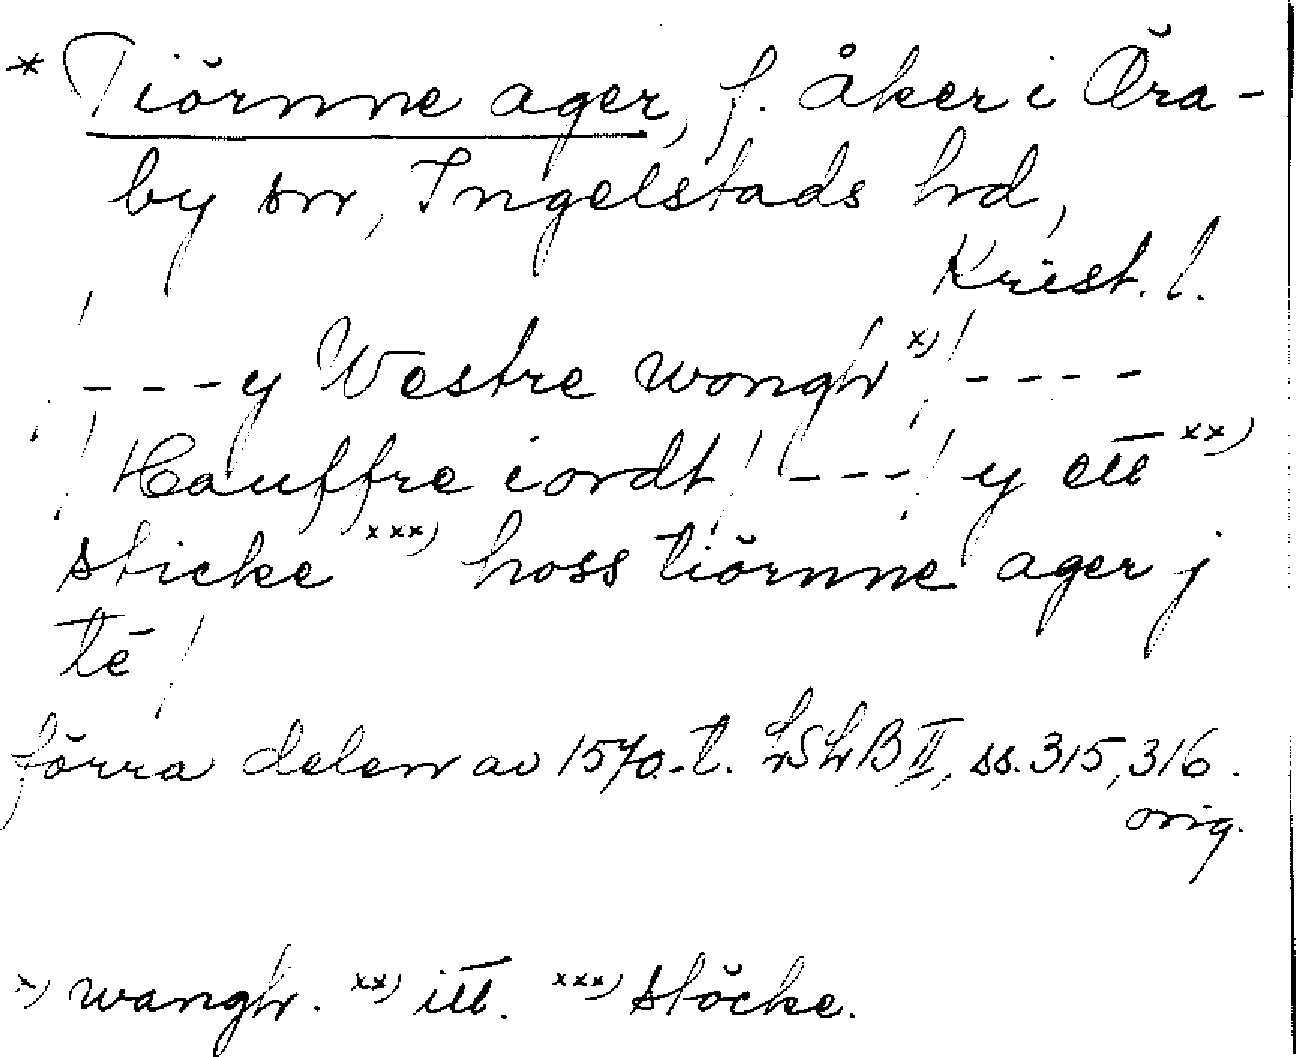 * Tiörnne ager, f. åker i Öra-
by sn, Ingelstads hd,
Krist. l.
/---y Westre wongh x)/----
/Hauffre iordt/---/y ett xx)
sticke xxx) hoss tiörnne ager j
tē/
förra delen av 1570-t. LSLB II, ss. 315, 316.
orig.
x) wangh. xx) itt. xxx) stöcke.